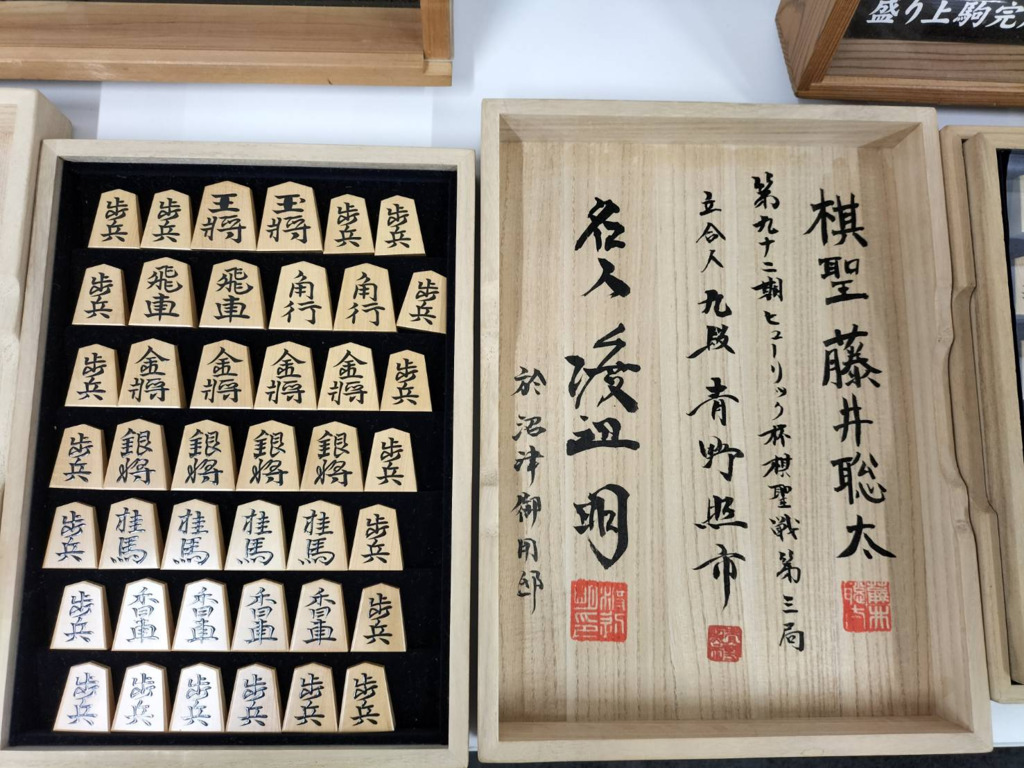 盛り上駒完
歩兵 歩兵 王將 玉將 歩兵 歩兵
歩兵 飛車 飛車 角行 角行 歩兵
歩兵 金將 金將 金將 金將 歩兵
歩兵 銀将 銀将 銀将 銀将 歩兵
歩兵 桂馬 桂馬 桂馬 桂馬 歩兵
歩兵 香車 香車 香車 香車 歩兵
歩兵 歩兵 歩兵 歩兵 歩兵 歩兵
棋聖 藤井聡太
第九十二期ヒューリック杯棋聖戦第三局
立合人 九段 青野照市
名人 渡辺明
於沼津御用邸